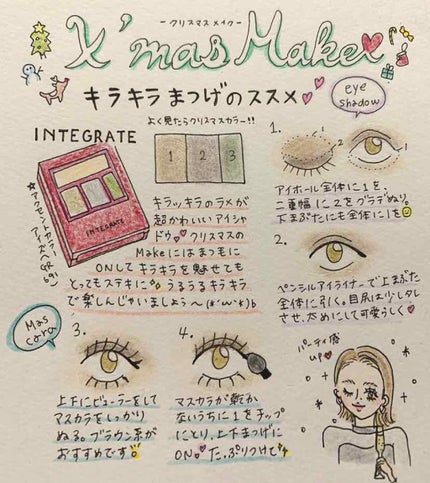 - クリスマスメイク -
X'mas Make
キラキラまつげのススメ
よく見たらクリスマスカラー!!
INTEGRATE
INTEGRATE
1 2 3
★アクセントカラー
キラッキラのラメが
超かわいいアイシャ
ドウ クリスマスの
Makeにはまつ毛に
ONしてキラキラを魅せても
とってもステキに うるうるキラキラ
で楽しんじゃいましょう〜(*'ω'*)b
eye
shadow
1.
1
2
1
アイホール全体に1を、
二重幅に2をグラデぬり。
下まぶたにも全体に1を
2.
ペンシルアイライナーで上まぶた
全体に引く。目尻は少しタレ
させ、ためにして可愛らしく
Mas
cara
3.
上下にビューラーをして
マスカラをしっかり
ぬる。ブラウン系が
おすすめです
4.
マスカラが乾か
ないうちに1をチップ
にとり、上下まつげに
ON たっぷりつけて
パーティ感
up